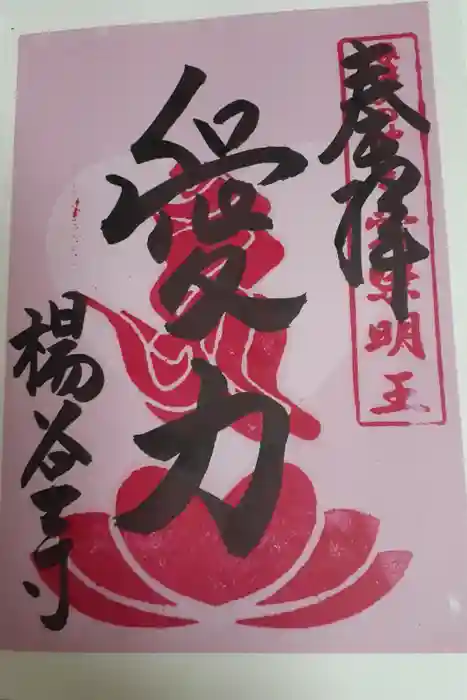 奉拝
愛染明王
愛力
楊谷寺